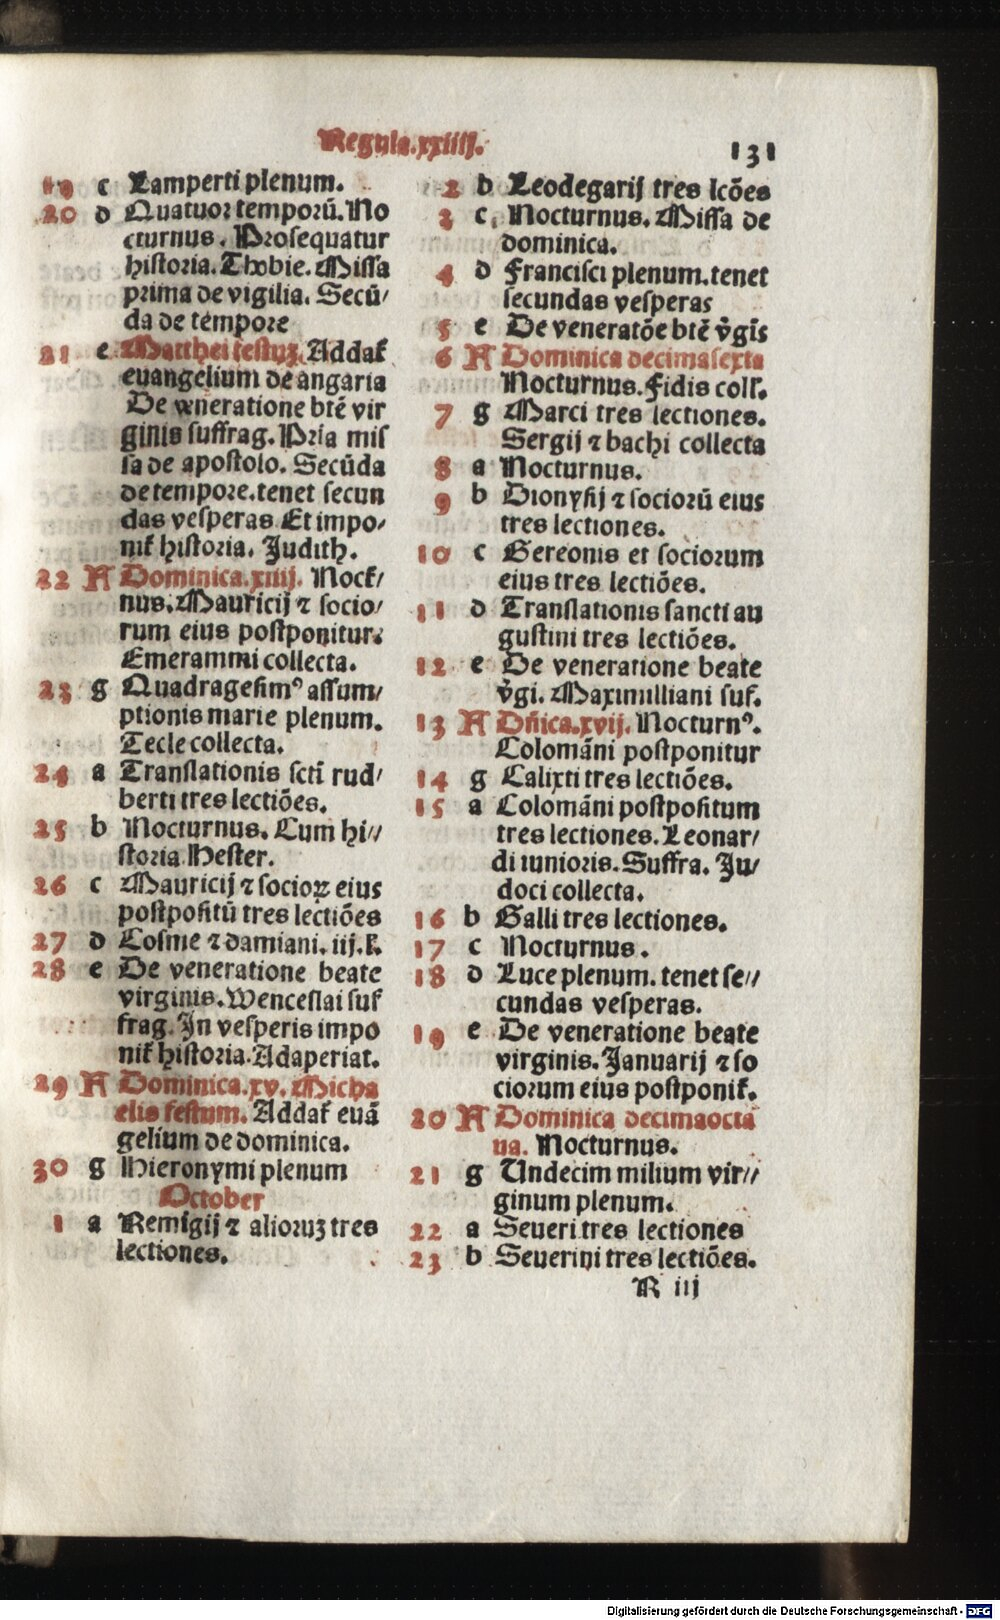 Regula.xxiiij. 131
19 c Lamperti plenum.
20 d Quatuor temporū. No
cturnus. Prosequatur
historia. Thobie. Missa
prima de vigilia. Secū/
da de tempore
21 e Matthei festuꝫ. Addat᷑
euangelium de angaria
De veneratione btē vir
ginis suffrag. Pria mis
sa de apostolo. Secūda
de tempore. tenet secun
das vesperas Et impo/
nit᷑ historia. Judith.
22 A Dominica.xiiij. Noct᷑/
nus. Mauricij ⁊ socio/
rum eius postponitur.
Emerammi collecta.
23 g Quadragesimꝰ assum/
ptionis marie plenum.
Tecle collecta.
24 a Translationis sctī rud/
berti tres lectiōes.
25 b Nocturnus. Cum hi//
storia Hester.
26 c Mauricij ⁊ socioꝝ eius
postpositū tres lectiōes
27 d Cosme ⁊ damiani. iij.ł.
28 e De veneratione beate
virginis. Wenceslai suf
frag. In vesperis impo
nit᷑ historia. Adaperiat.
29 A Dominica.xv. Micha
elis festum. Addat᷑ euā
gelium de dominica.
30 g Hieronymi plenum
October
1 a Remigij ⁊ alioruꝫ tres
lectiones.
2 b Leodegarij tres lcōes
3 c Nocturnus. Missa de
dominica.
4 d Francisci plenum. tenet
secundas vesperas
5 e De veneratōe btē v̄gīs
6 A Dominica decimasexta
Nocturnus. Fidis coll.
7 g Marci tres lectiones.
Sergij ⁊ bachi collecta
8 a Nocturnus.
9 b Dionysij ⁊ sociorū eius
tres lectiones.
10 c Gereonis et sociorum
eius tres lectiōes.
11 d Translationis sancti au
gustini tres lectiōes.
12 e De veneratione beate
v̄gi. Maximilliani suf.
13 A Dn̄ica.xvij. Nocturnꝰ.
Colomāni postponitur
14 g Calixti tres lectiōes.
15 a Colomāni postpositum
tres lectiones. Leonar/
di iunioris. Suffra. Ju/
doci collecta.
16 b Galli tres lectiones.
17 c Nocturnus.
18 d Luce plenum. tenet se//
cundas vesperas.
19 e De veneratione beate
virginis. Januarij ⁊ so
ciorum eius postponit᷑.
20 A Dominica decimaocta
ua. Nocturnus.
21 g Undecim milium vir//
ginum plenum.
22 a Seueri tres lectiones
23 b Seuerini tres lectiōes.
R iij
Digitalisierung gefördert durch die Deutsche Forschungsgemeinschaft - DFG